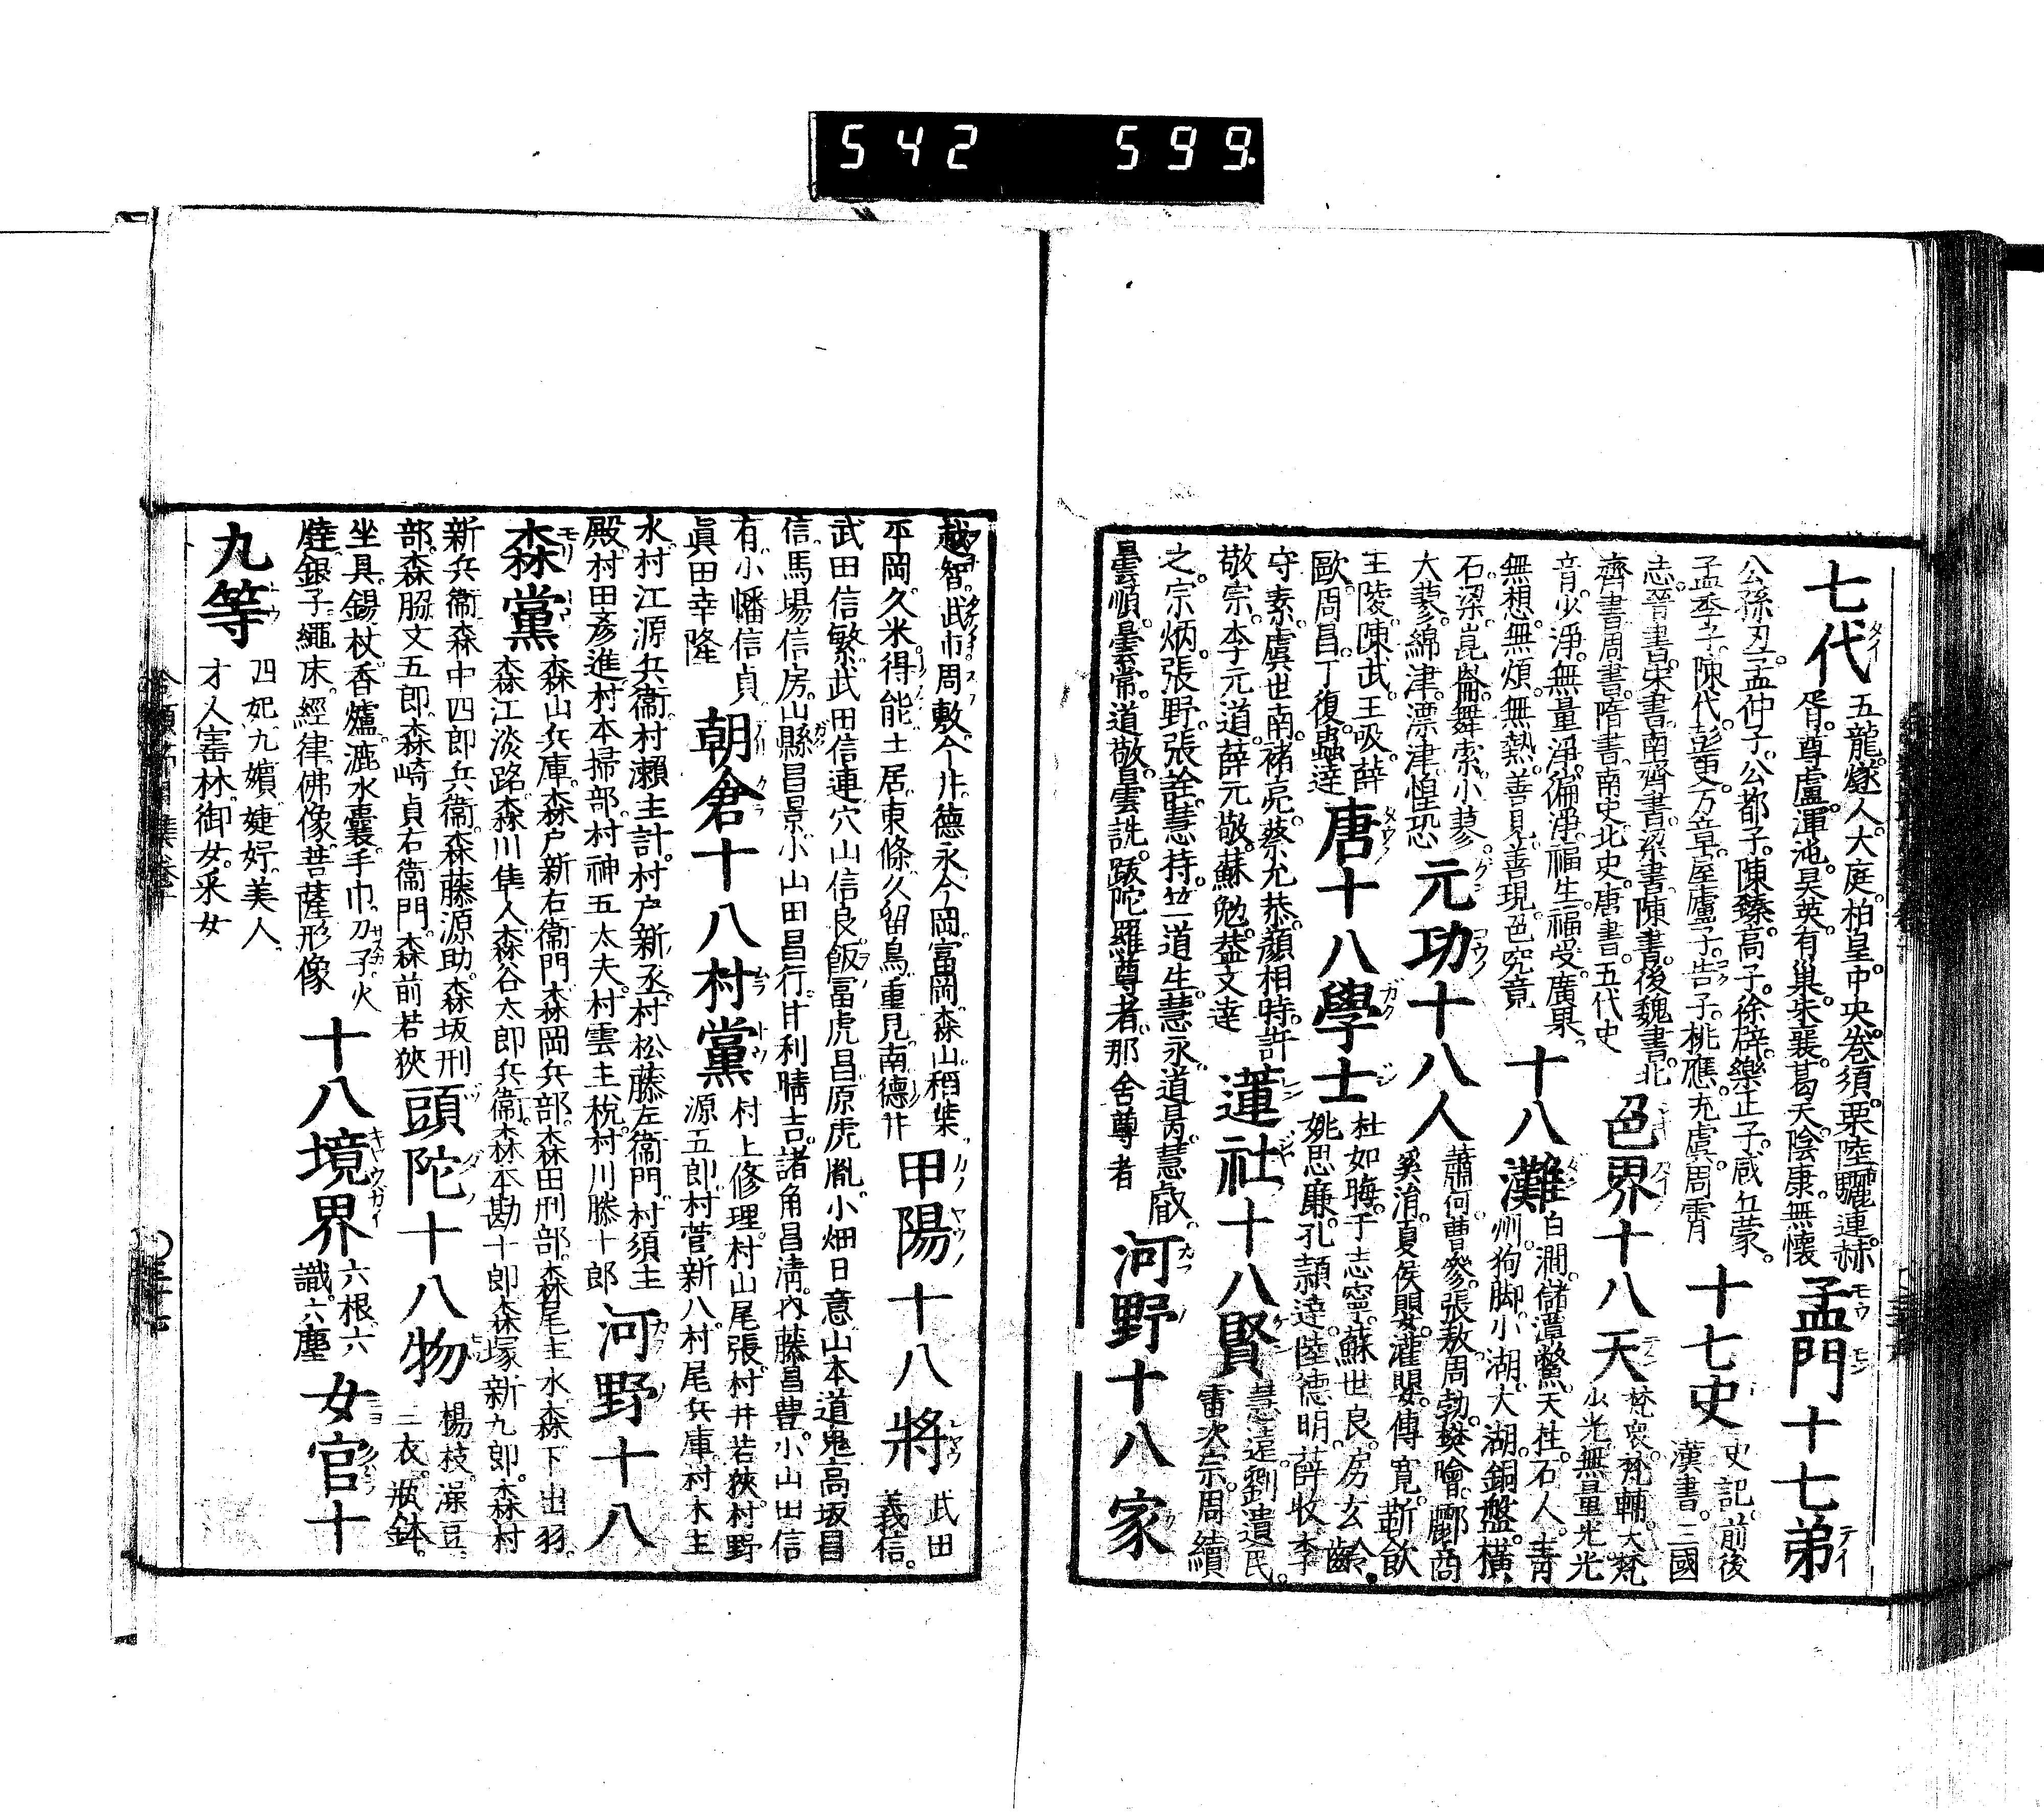 542 599.
七代 五龍。燧人。大庭。栢皇。中央。卷須。栗陸。驪連。赫
胥。尊盧。渾沌。昊英。有巢。朱襄。葛天。陰康。無懷
孟門十七弟
公孫丑。孟仲子。公都子。陳臻。高子。徐辟。樂正子。咸丘蒙。
孟季子。陳代。彭更。万章。屋廬子。告子。桃應。充虞。周霄
十七史 史記。前後
漢書。三國
志。晉書。宋書。南齊書。梁書。陳書。後魏書。北
齊書。周書。隋書。南史。北史。唐書。五代史
色界十八天 梵衆。梵輔。大梵
少光。無量光。光
音。少淨。無量淨。徧淨。福生。福受。廣果。
無想。無煩。無熱。善見。善現。色究竟
十八灘 白澗。儲潭。鱉。天柱。石人。青
州。狗脚。小湖。大湖。銅盤。橫
石。梁。崑崙。舞索。小蓼。
大蓼。綿津。漂津。惶恐
元功十八人 蕭何。曹參。張敖。周勃。樊噲。酈商
奚涓。夏侯嬰。灌嬰。傅寬。靳歙
王陵。陳武。王吸。薛
歐。周昌。丁復。蟲達
唐十八學士 杜如晦。于志寧。蘇世良。房玄齡。
姚思廉。孔頴達。陸德明。薛收。李
守素。虞世南。褚亮。蔡允恭。顏相時。許
敬宗。李元道。薛元敬。蘇勉。葢文達
蓮社十八賢 慧遠。劉遺民。
雷次宗。周續
之。宗炳。張野。張詮。慧持。竺道生。慧永。道昺。慧叡。
曇順。曇常。道敬。曇詵。跋陀羅尊者。那舍尊者
河野十八家
越智。武市。周敷。今井。德永。今岡。富岡。森山。稻葉
平岡。久米。得能。土居。東條。久留島。重見。南。德井
甲陽十八將 武田
義信。
武田信繁。武田信連。穴山信良。飯冨虎昌。原虎胤。小畑日意。山本道鬼。高坂昌
信。馬場信房。山縣昌景。小山田昌行。甘利晴吉。諸角昌清。內藤昌豊。小山田信
有。小幡信貞
眞田幸隆
朝倉十八村黨 村上修理。村山尾張。村井若狹。村野
源五郎。村菅新八。村尾兵庫。村木主
水。村江源兵衞。村瀬主計。村戸新丞。村松藤左衞門。村須主
殿。村田彥進。村本掃部。村神五太夫。村雲主稅。村川滕十郎
河野十八
森黨 森山兵庫。森戸新右衞門。森岡兵部。森田刑部。森尾主水。森下出羽。
森江淡路。森川隼人。森谷大郎兵衞。森本勘十郎。森塚新九郎。森村
新兵衞。森中四郎兵衞。森藤源助。森坂刑
部。森脇文五郎。森﨑貞右衞門。森前若狹
頭陀十八物 楊枝。澡豆。
三衣。瓶。鉢。
坐具。錫杖。香爐。漉水囊。手巾。刀子。火
燧。銀子。繩床。經。律。佛像。菩薩形像
十八境界 六根。六
識。六塵
女官十
九等 四妃。九嬪。婕妤。美人。
才人。寳林。御女。采女